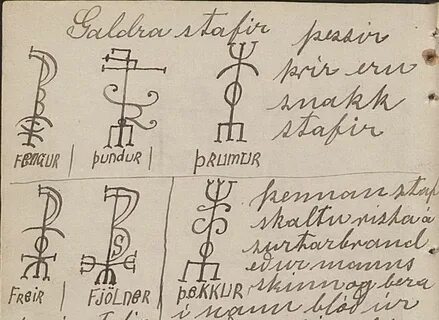 Galdra stafir
þessir
þrir eru
snakk
stafir
FENGUR þundur þRUMUR
þennan staf
skaltu rista á
surtarbrand
eður manns
skinn og bera
í hann blóð úr
FReir FJÖLNER þEKKUR